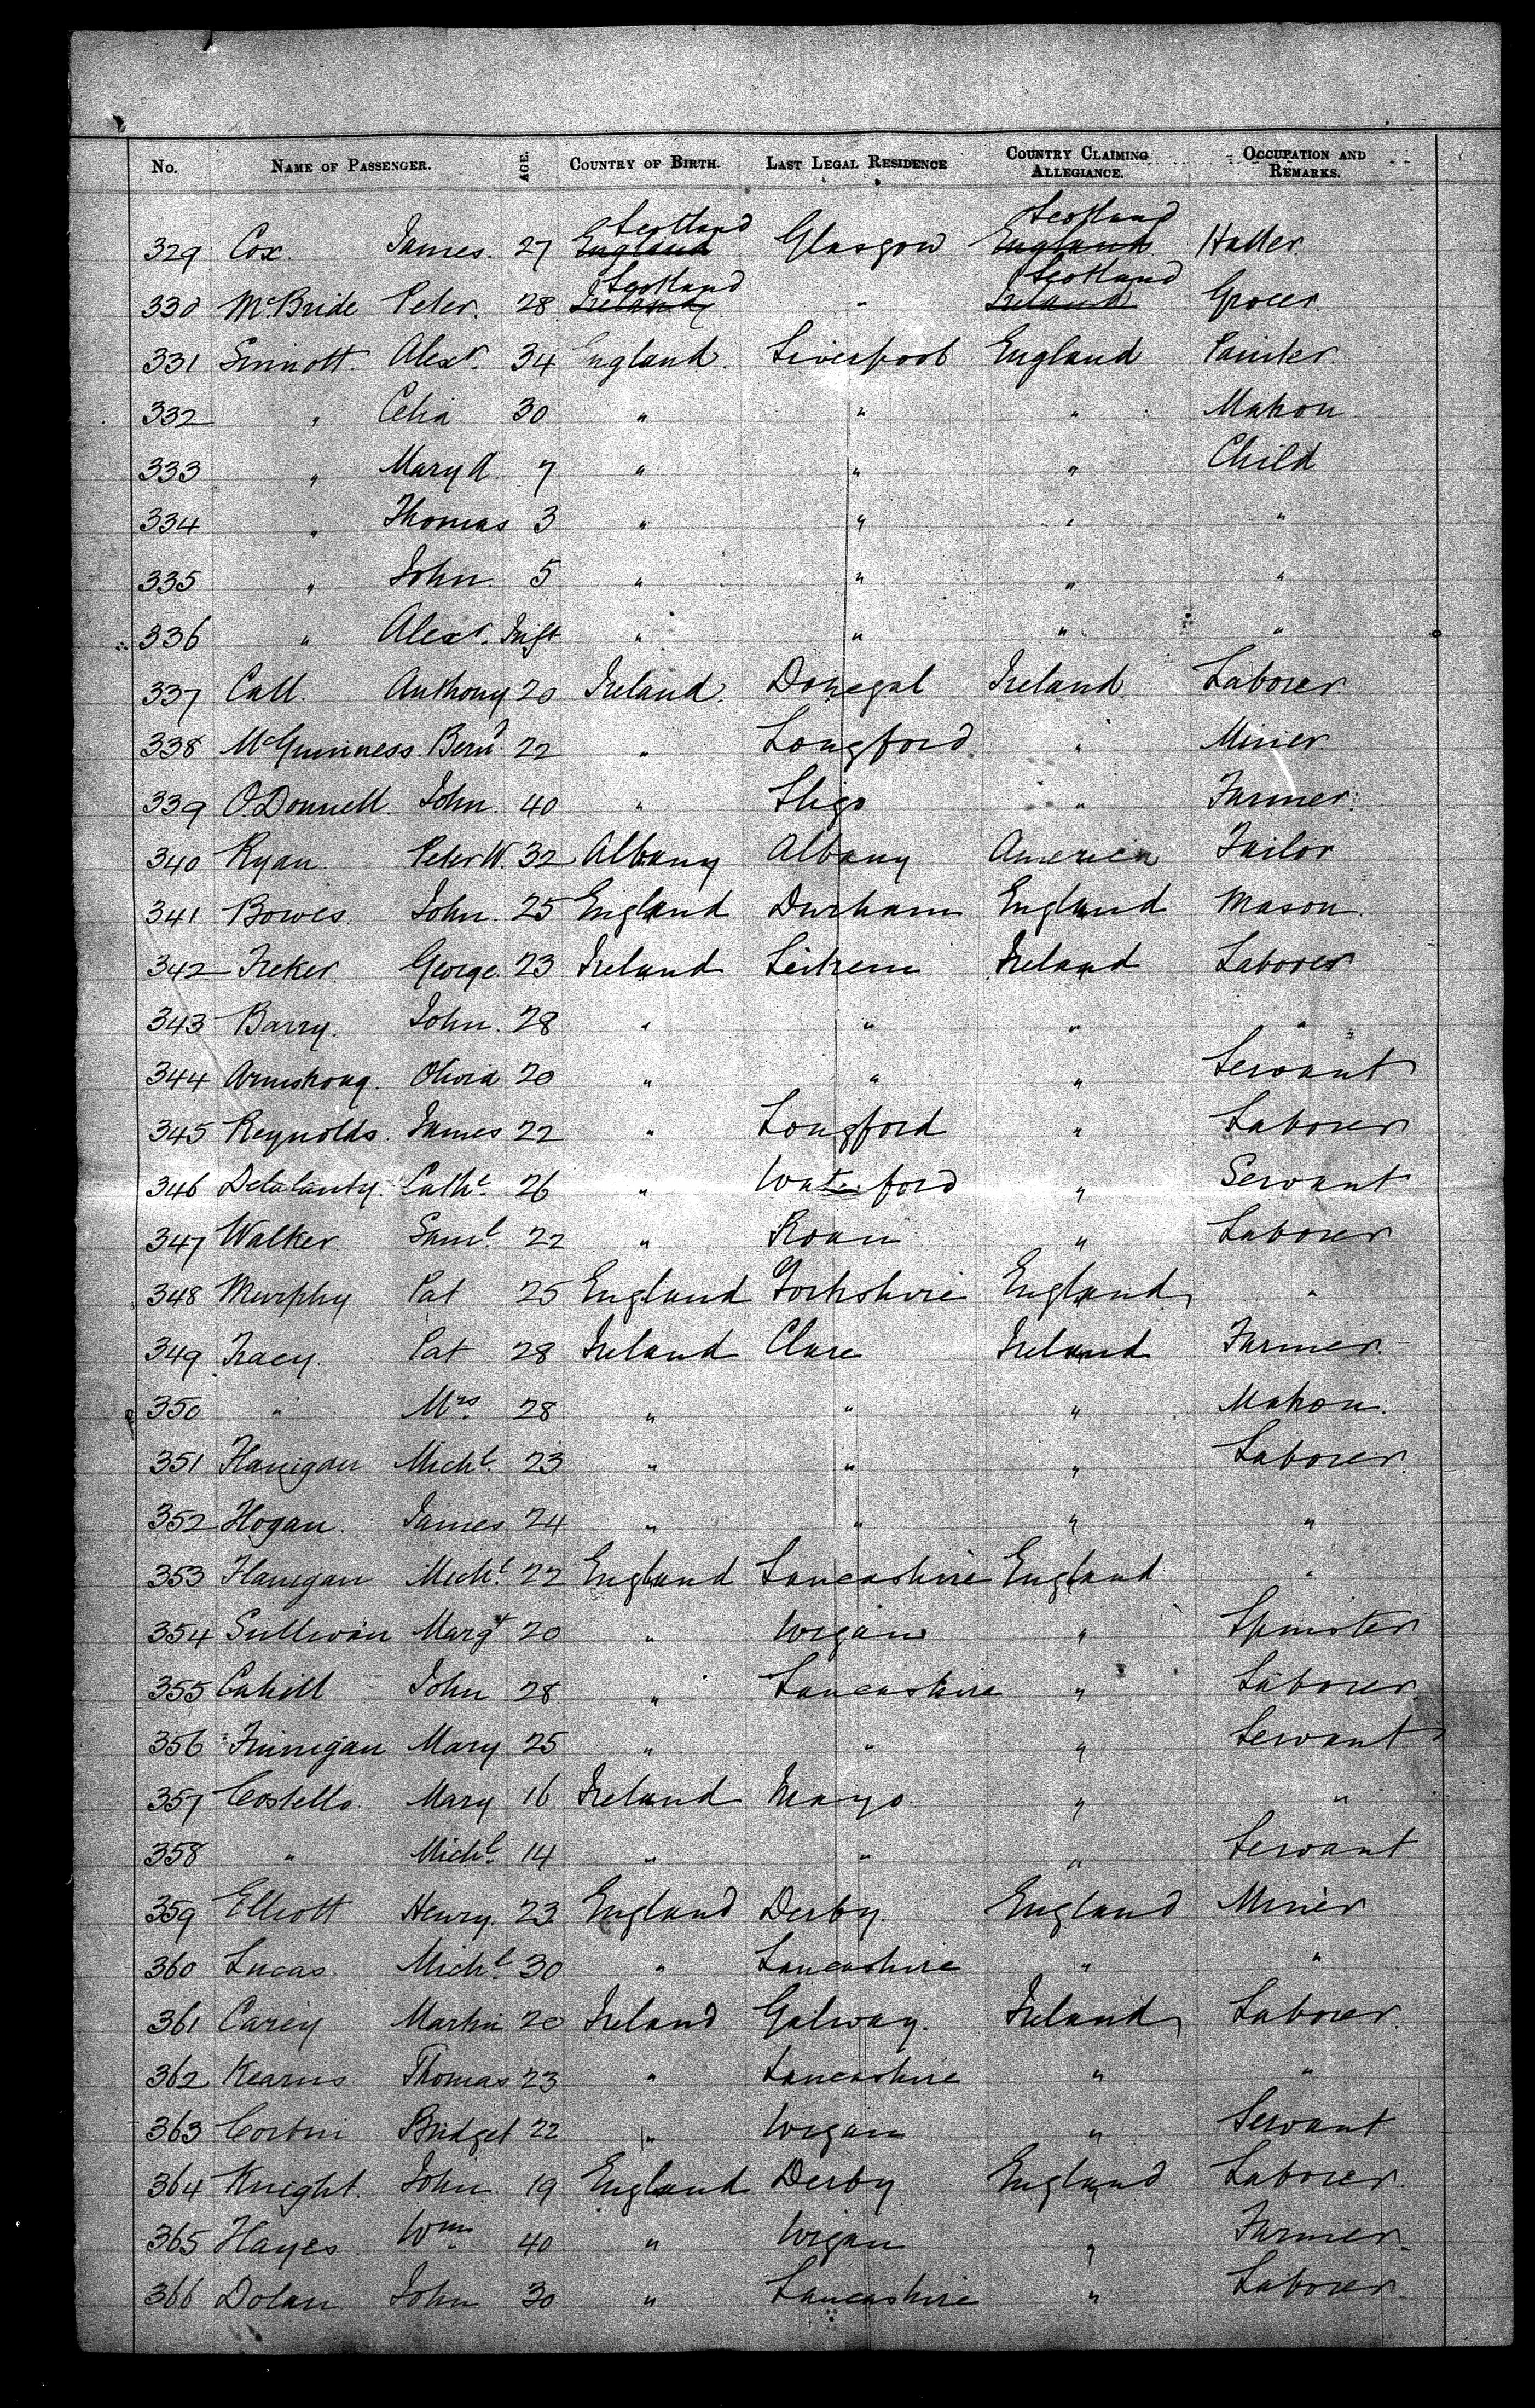 No. NAME OF PASSENGER. AGE. COUNTRY OF BIRTH. LAST LEGAL RESIDENCE COUNTRY CLAIMING ALLEGIANCE. OCCUPATION AND REMARKS.
Scotland Scotland
329 Cox. James. 27 England Glasgow England Hatter.
Scotland Scotland
330 McBride Peter. 28 Ireland " Ireland Grocer.
331 Sinnott. Alexr. 34 England. Liverpool England Painter
332 " Celia 30 " " " Matron
333 " Mary A. 7 " " " Child
334 " Thomas 3 " " " "
335 " John 5 " " " "
336 " Alexr. Inft " " " "
337 Call. Anthony 20 Ireland. Donegal Ireland Laborer
338 McGuinness. Bernd 22 " Longford " Miner.
339 O'Donnell. John. 40 " Sligo " Farmer.
340 Ryan. Peter W. 32 Albany Albany America Tailor
341 Bowes John. 25 England Durham England Mason.
342 George. 23 Ireland Leitrim Ireland Laborer
343 Barry. John. 28 " " " "
344 Armstrong. Olivia 20 " " " Servant
345 Reynolds. James 22 " Longford " Laborer
346 Delahanty. Cathe. 26 " Waterford " Servant
347 Walker Saml. 22 " " Laborer
348 Murphy Pat 25 England Yorkshire England "
349 Tracy. Pat 28 Ireland Clare Ireland Farmer.
350 " Mrs. 28 " " " Matron.
351 Flanigan Michl. 23 " " " Laborer.
352 Hogan. James 24 " " " "
353 Flanigan Michl. 22 England Lancashire England "
354 Sullivan Margt 20 " Wigan " Spinster
355 Cahill John 28 " Lancashire " Laborer
356 Finnigan Mary 25 " " " Servant
357 Costello. Mary 16 Ireland Mayo. " "
358 " Michl. 14 " " " Servant
359 Elliott Henry. 23 England Derby. England Miner
360 Lucas. Michl. 30 " Lancashire " "
361 Carey Martin 20 Ireland Galway. Ireland Laborer.
362 Kearns Thomas 23 " Lancashire " "
363 Bridget 22 " Wigan " Servant
364 Knight. John. 19 England Derby England Laborer.
365 Hayes Wm. 40 " Wigan " Farmer.
366 Dolan John 30 " Lancashire " Laborer.